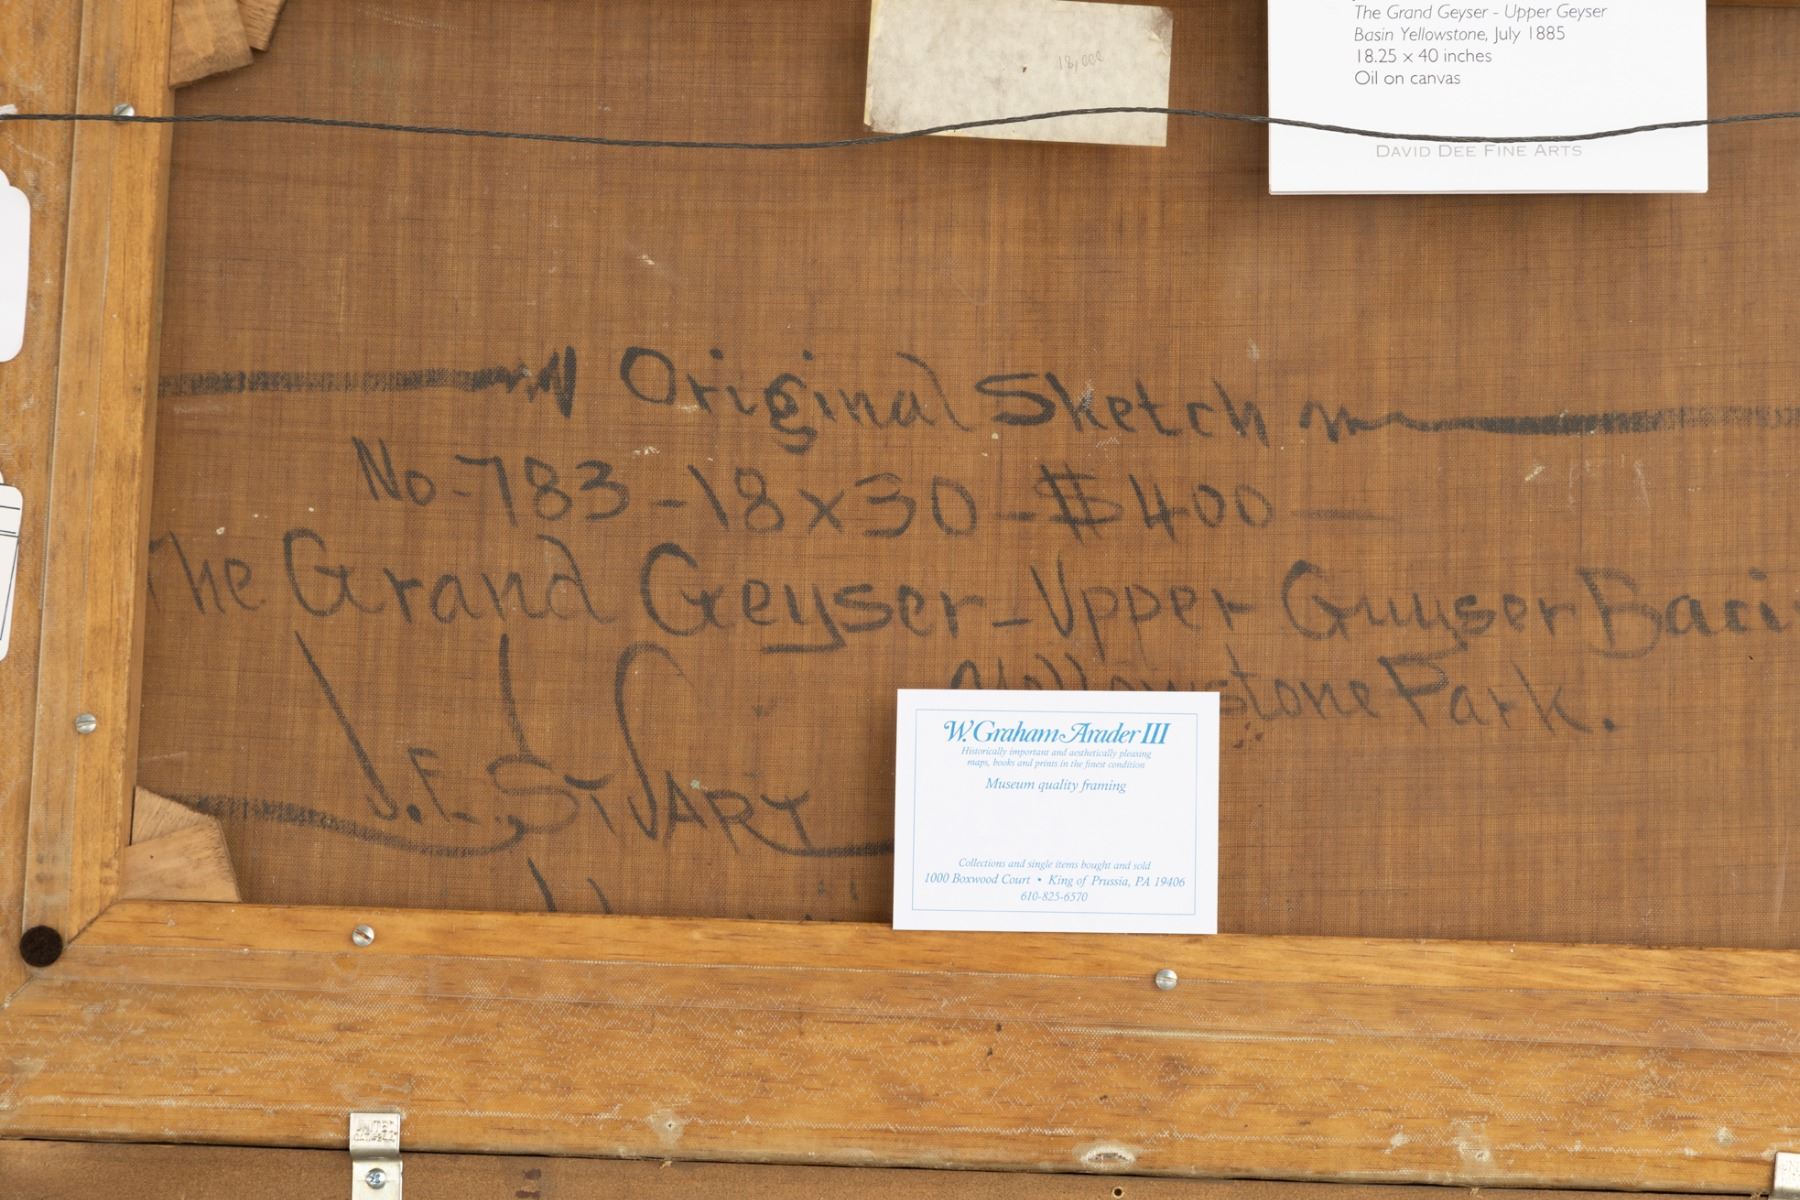 The Grand Geyser - Upper Geyser
Basin Yellowstone, July 1885
18.25 × 40 inches
Oil on canvas
DAVID DEE FINE ARTS
18,000
Original Sketch
No-783-18x30-$400-
The Grand Geyser-Upper Guyser Baci
Yellowstone Park.
J.E. STUART
W. Graham Arader III
Historically important and aesthetically pleasing
maps, books and prints in the finest condition
Museum quality framing
Collections and single items bought and sold
1000 Boxwood Court • King of Prussia, PA 19406
610-825-6570